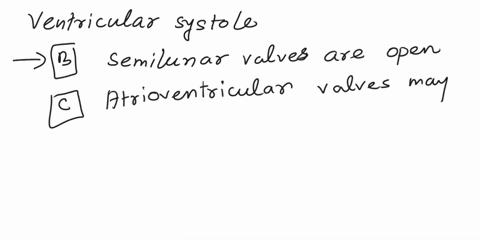 Ventricular systole
→ B Semilunar valves are open
C Atrioventricular valves may